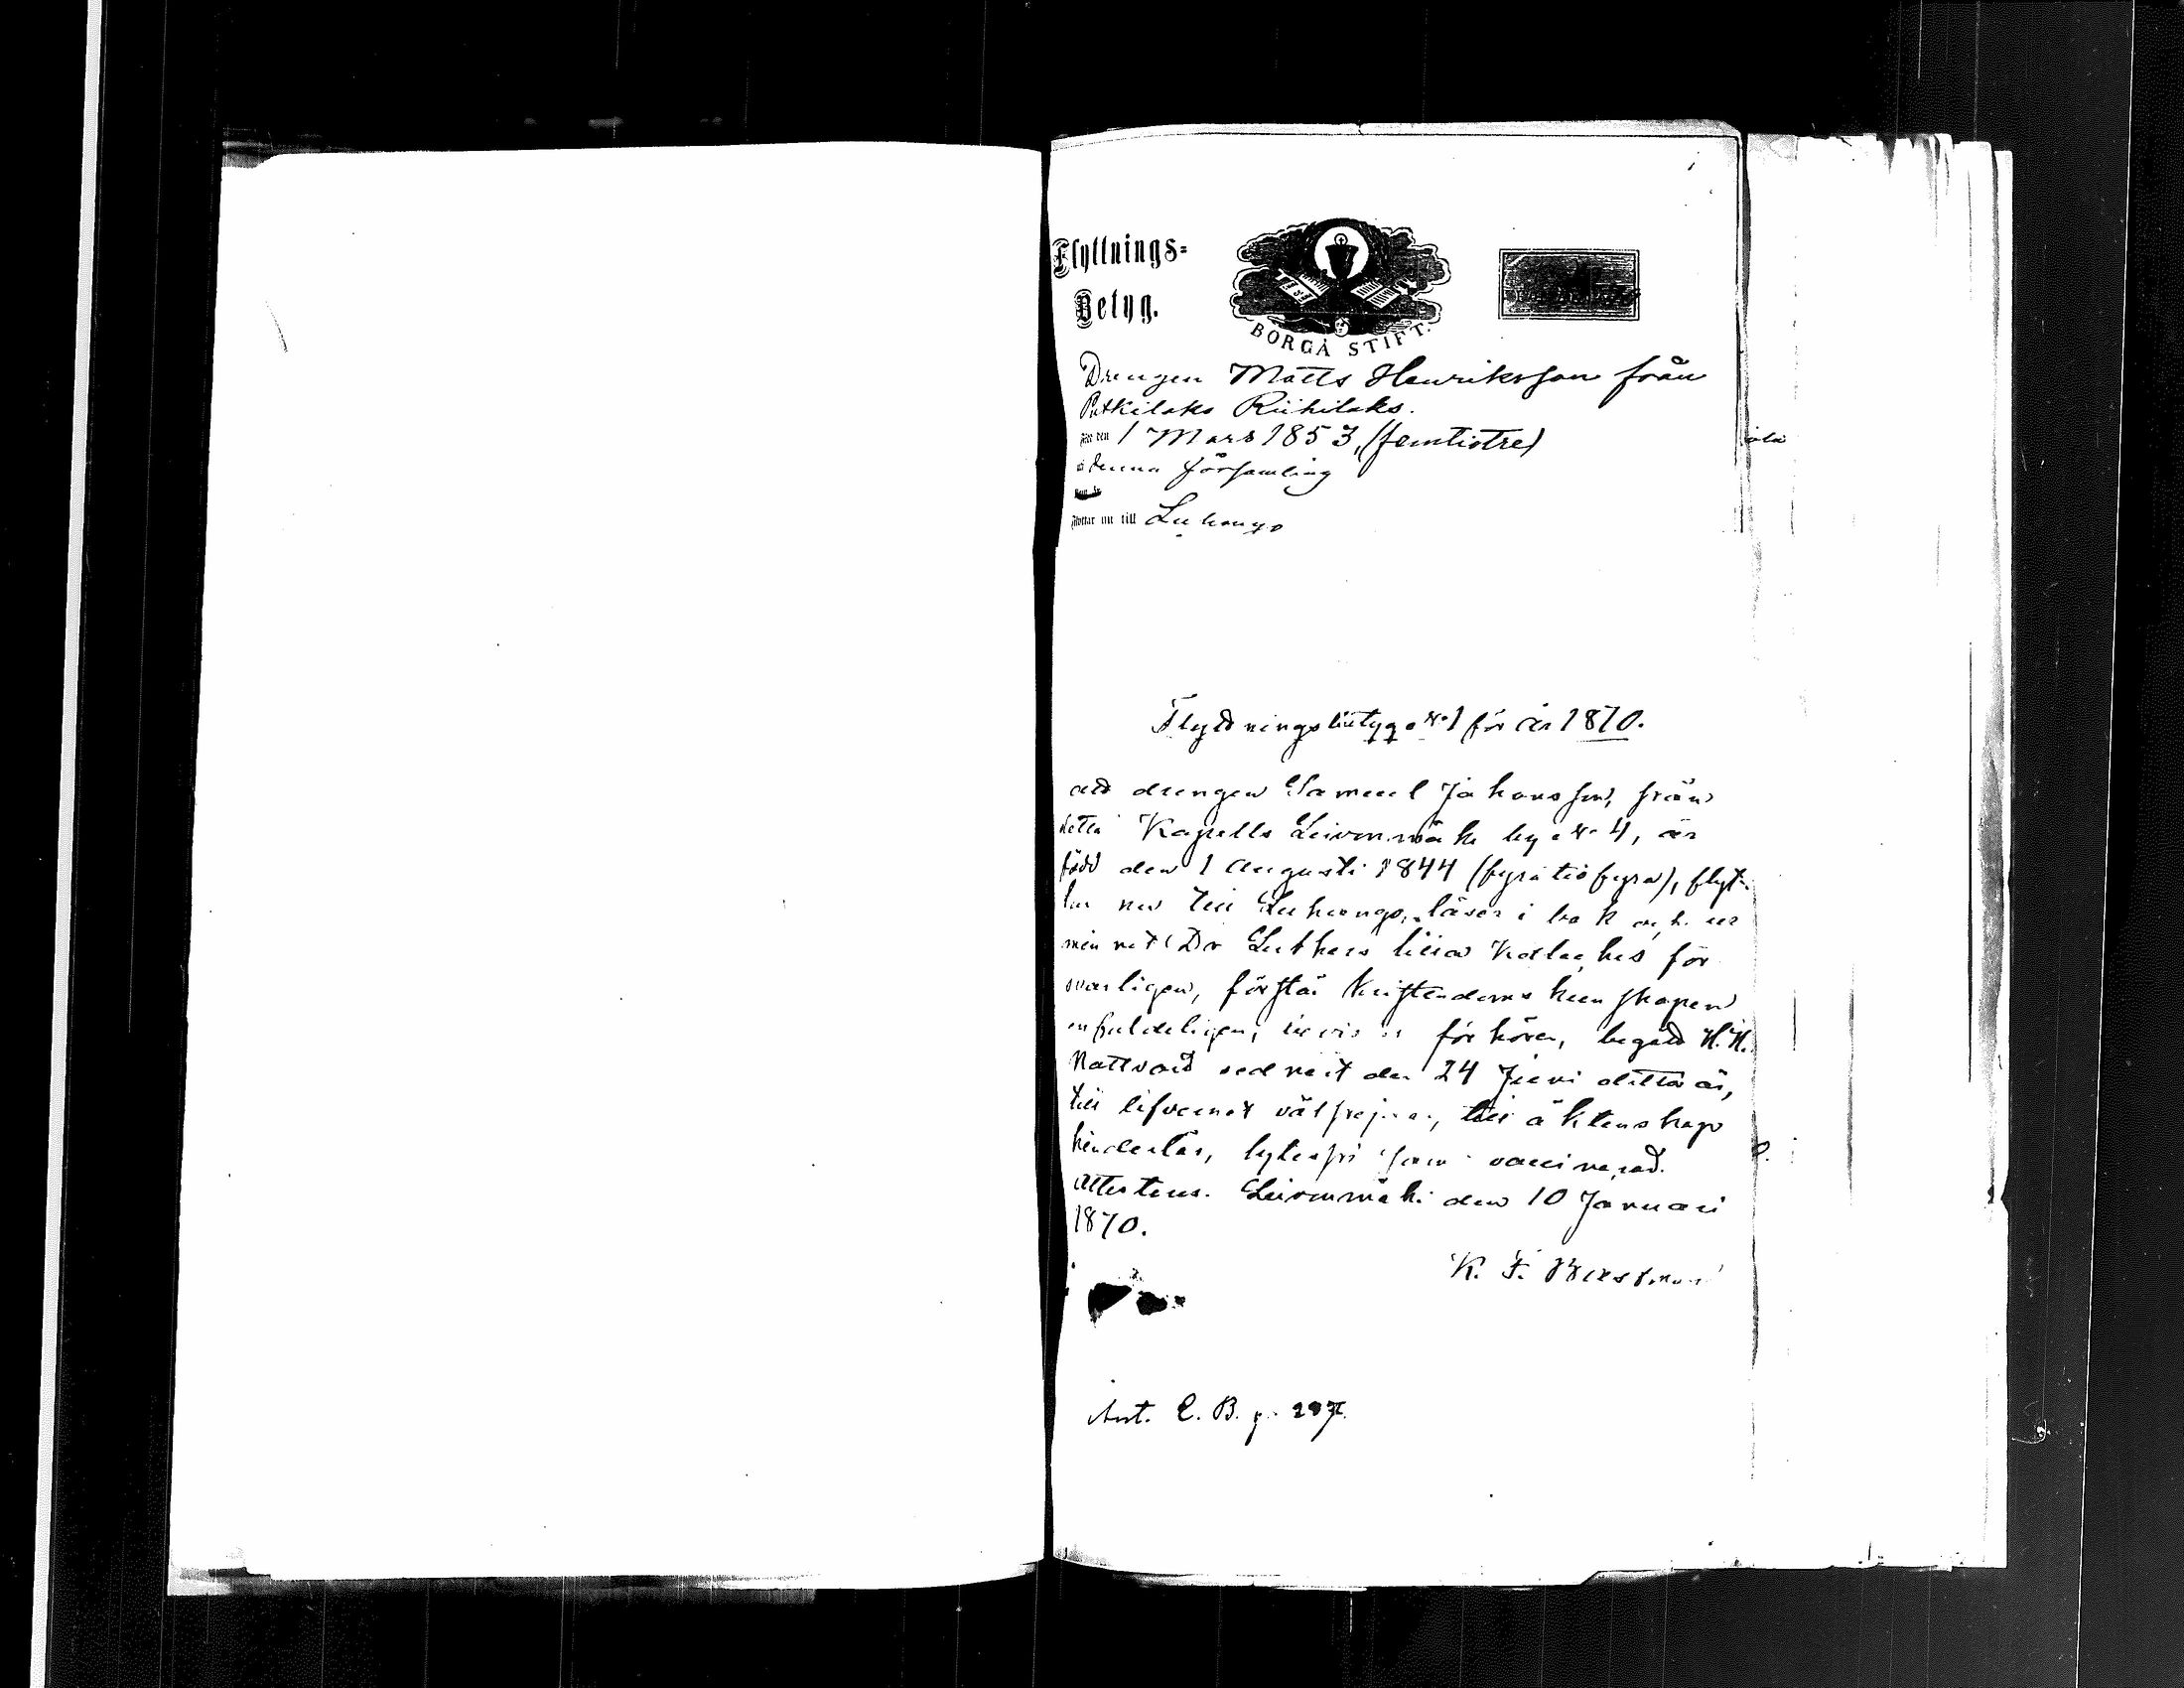 Flyttnings=
Betyg.
BORGÅ STIFT.
Drengen Matts Henriksson från
Putkilaks Riihilaks.
född den 1 Mars 1853, (femtiotre)
i denna församling
flyttar nu till Luhango
Flyttningsbetyg No 1 för år 1870.
att drengen Samuel Johansson, från
detta Kapells Leivonmäki by No 4, är
född den 1 Augusti 1844 (fyratiofyra), flyt-
tar nu till Luhango, läser i bok och ur
minnet Dr Luthers lilla Kateches för
svarligen, förstår Kristendoms kunskapen
enfaldeligen, bevistat förhören, begått H. H.
Nattvard sednast den 24 Juni detta år,
till lifvernet välfrejdad, till äktenskap
hinderlös, lytesfri samt vaccinerad.
Attesteras. Leivonmäki den 10 Januari
1870.
K. F.
Ant. C. B. p. 297.